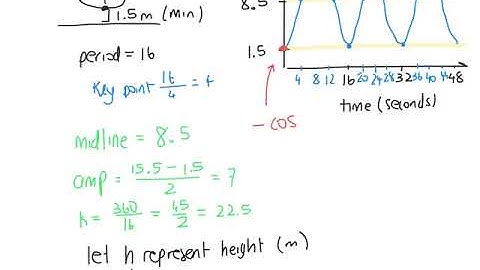 8.5
1.5m (min)
1.5
period = 16
key point 16/4 = 4
4 8 12 16 20 24 28 32 36 40 44 48
time (seconds)
- cos
midline = 8.5
amp = 15.5 - 1.5/2 = 7
k = 360/16 = 45/2 = 22.5
let h represent height (m)